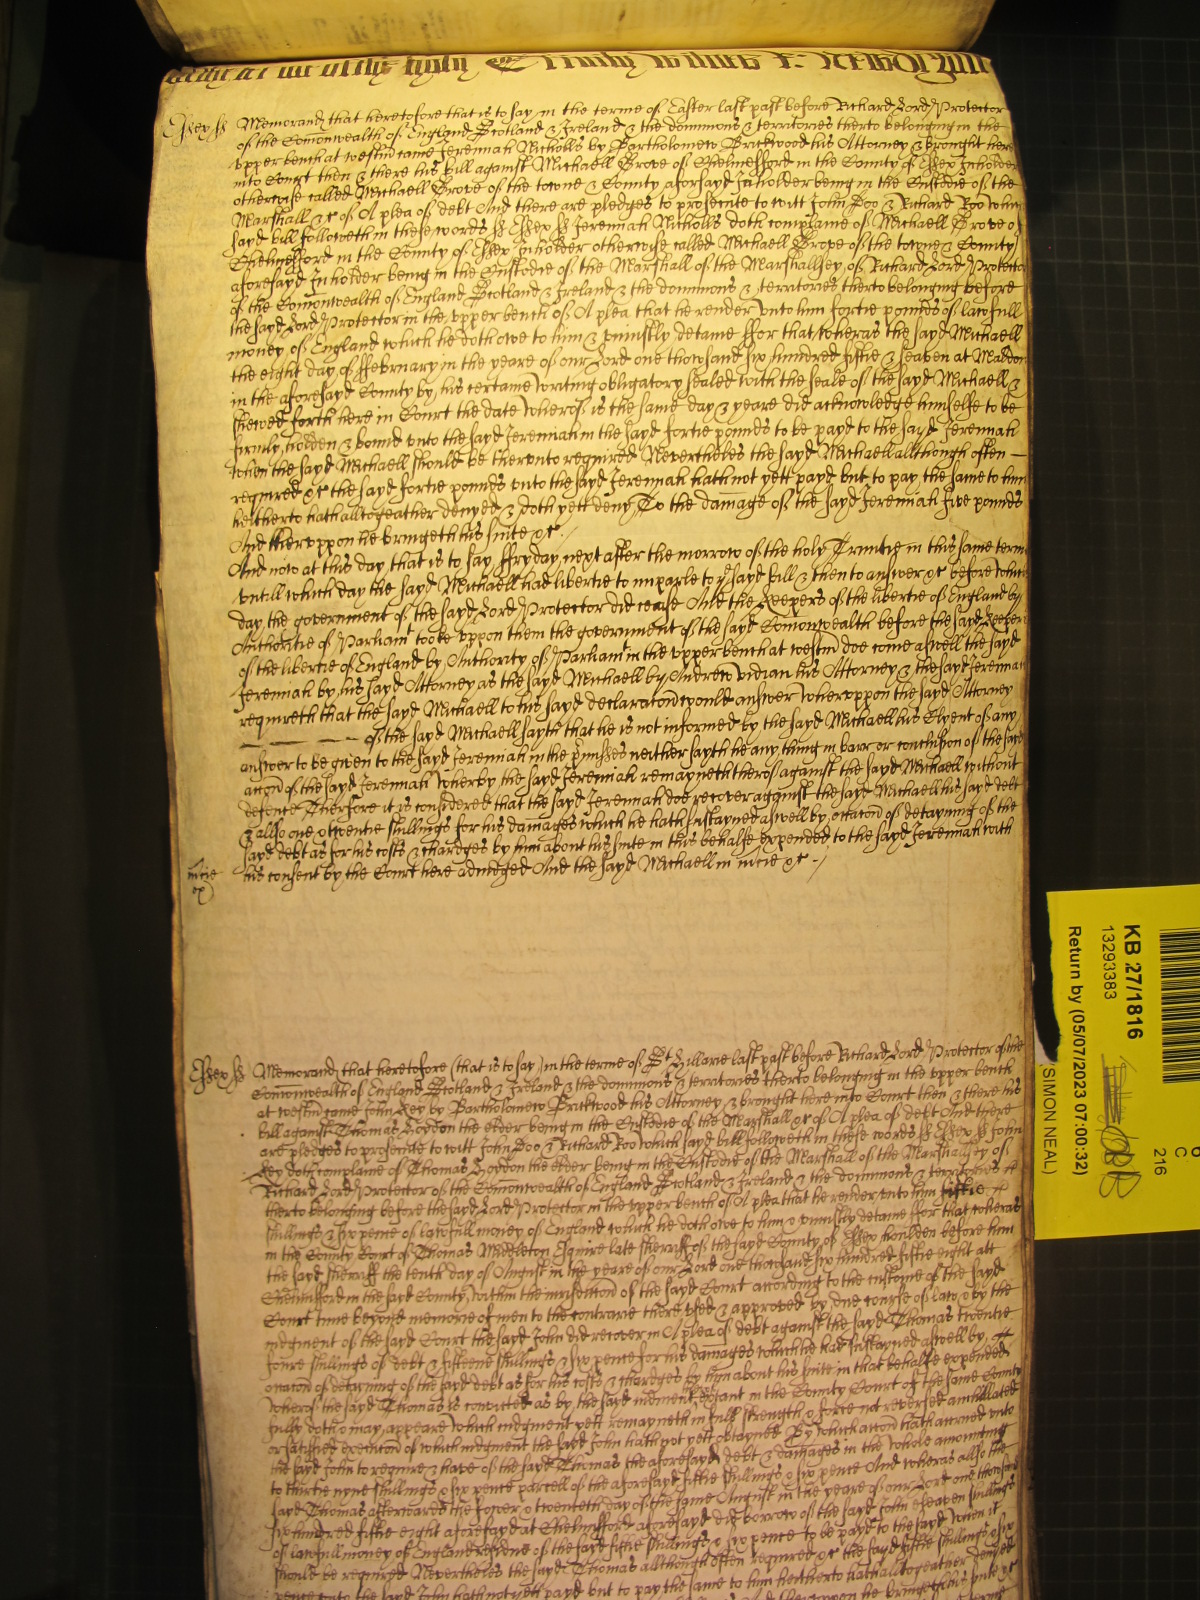 Essex ss Memorand that heretofore that is to say in the terme of Easter last past before Richard Lord Protector
of the Com̄onwealth of England Scotland & Ireland & the dominions & territories therto belonging in the
upper bench at westm̄ came Jeremiah Nicholls by Bartholomew Brickwood his Attorney & brought here
into Court then & there his bill against Michaell Grove of Chelmesford in the County of Essex Inholder
otherwise called Michaell Grove of the towne & County aforesayd Inholder being in the Custodie of the
Marshall &c of A plea of debt And there are pledges to prosecute to witt John Doo & Richard Roo which
sayd bill followeth in these words ss Essex ss Jeremiah Nicholls doth complaine of Michaell Grove of
Chelmesford in the County of Essex Inholder otherwise called Michaell Grove of the towne & County
aforesayd Inholder being in the Custodie of the Marshall of the Marshallsey of Richard Lord Protector
of the Com̄onwealth of England Scotland & Ireland & the dominions & territories therto belonging before
the sayd Lord Protector in the upper bench of A plea that he render unto him fortie pounds of lawfull
money of England which he doth owe to him & uniustly detaine ffor that wheras the sayd Michaell
the eight day of ffebruary in the yeare of our Lord one thowsand six hundred fiftie & seaven at Maldon
in the aforesayd County by his certaine writing obligatory sealed with the seale of the sayd Michaell &
shewed forth here in Court the date wherof is the same day & yeare did acknowledge himselfe to be
firmly holden & bound unto the sayd Jeremiah in the sayd fortie pounds to be payd to the sayd Jeremiah
when the sayd Michaell should be therunto required Nevertheles the sayd Michaell allthough often
required &c the sayd fortie pounds unto the sayd Jeremiah hath not yett payd but to pay the same to him
heitherto hath alltogeather denyed & doth yett deny To the damage of the sayd Jeremiah five pounds
And thervppon he bringeth his suite &c
And now at this day that is to say ffryday next after the morrow of the holy Trinitie in this same terme
untill which day the sayd Michaell had libertie to imparle to ye sayd bill & then to answer &c before which
day the government of the sayd Lord Protector did cease And the Keepers of the libertie of England by
Authoritie of Parliamt tooke uppon them the government of the sayd Com̄onwealth before the sayd Keepers
of the libertie of England by Authority of Parliamt in the upper bench at westm̄ doe come aswell the sayd
Jeremiah by his sayd Attorney as the sayd Michaell by Andrew Vidian his Attorney & the sayd Jeremiah
requireth that the sayd Michaell to his sayd declarac̄on would answer wheruppon the sayd Attorney
of the sayd Michaell sayth that he is not informed by the sayd Michaell his Clyent of any
answer to be given to the sayd Jeremiah in the p̄misses neither sayth he any thing in barr or conclusion of the sayd
acc̄on of the sayd Jeremiah wherby the sayd Jeremiah remayneth therof against the sayd Michaell without
defence Therfore it is considered that the sayd Jeremiah doe recover against the sayd Michaell his sayd debt
& allso one & twentie shillings for his damages which he hath sustayned aswell by occac̄on of detayning of the
sayd debt as for his costs & chardges by him about his suite in this behalfe expended to the sayd Jeremiah with
his consent by the Court here adiudged And the sayd Michaell in mcie &c
mcie
Essex ss Memorand that heretofore (that is to say) in the terme of St Hillarie last past before Richard Lord Protector of the
Com̄onwealth of England Scotland & Ireland & the dominions & territories therto belonging in the upper bench
at westm̄ came John by Bartholomew Brickwood his Attorney & brought here into Court then & there his
bill against Thomas the elder being in the Custodie of the Marshall &c of A plea of debt And there
are pledges to prosecute to witt John Doo & Richard Roo which sayd bill followeth in these words ss Essex ss John
doth complaine of Thomas the elder being in the Custodie of the Marshall of the Marshallsey of
Richard Lord Protector of the Com̄onwealth of England Scotland & Ireland & the dominions & territories
therto belonging before the sayd Lord Protector in the upper bench of A plea that he render unto him fiftie
shillings & six pence of lawfull money of England which he doth owe to him & uniustly detaine ffor that wheras
in the County Court of Thomas Middleton Esquire late Sherriff of the sayd County of Essex houlden before him
the sayd Sherriff the tenth day of August in the yeare of our Lord one thowsand six hundred fiftie eight att
Chelmsford in the sayd County within the iurisdicc̄on of the sayd Court according to the custome of the sayd
Court time beyond memorie of men to the contrarie there used & approved by due course of law & by the
iudgment of the sayd Court the sayd John did recover in A plea of debt against the sayd Thomas twentie
foure shillings of debt & fifteene shillings & six pence for his damages which he had sustayned aswell by
occac̄on of detayning of the sayd debt as for his costs & chardges by him about his suite in that behalfe expended
wherof the sayd Thomas is convicted as by the sayd iudgment extant in the County Court of the same County
fully doth & may appeare which iudgment yett remayneth in full strength & force not reversed annihilated
or satisfied execuc̄on of which iudgment the sayd John hath not yett obtayned By which acc̄on hath accrued unto
the sayd John to require & have of the sayd Thomas the aforesayd debt & damages in the whole amounting
to thirtie nyne shillings & six pence parcell of the aforesayd fiftie shillings & six pence And wheras allso the
sayd Thomas afterwards the fower & twenteth day of the same August in the yeare of our Lord one thowsand
six hundred fiftie eight aforesayd at Chelmsford aforesayd did borrow of the sayd John eleaven shillings
of lawfull money of England residue of the sayd fiftie shillings & six pence to be payd to the sayd when it
should be required Nevertheles the sayd Thomas allthough often required &c the sayd fiftie shillings & six
pence unto the sayd John hath not yett payd but to pay the same to him heitherto hath alltogeather denyed
KB 27/1816
13293383
Return by (05/07/2023 07:00:32)
(SIMON NEAL)
C
216